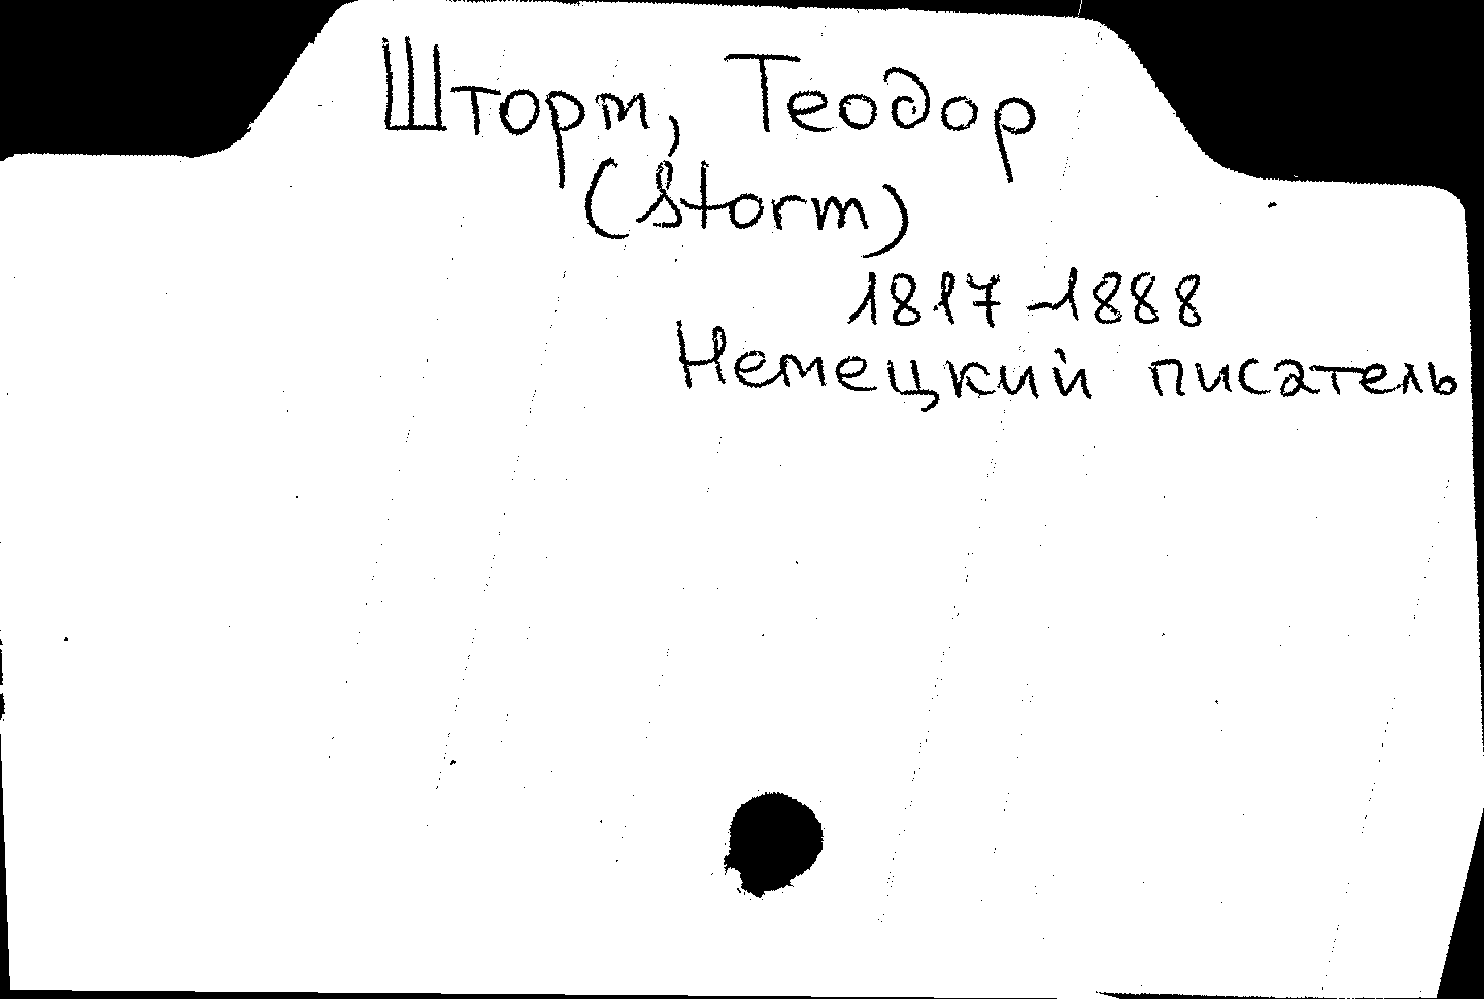 Шторм, Теодор
(Storm)
1817-1888
Немецкий писатель